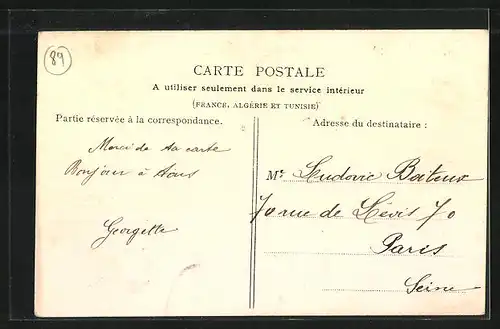 89
CARTE POSTALE
A utiliser seulement dans le service intérieur
(FRANCE, ALGÉRIE ET TUNISIE)
Partie réservée à la correspondance.
Merci de ta carte
Bonjour à tous
Georgette
Adresse du destinataire :
Mr Ludovic Boiteux
70 rue de Lévis 70
Paris
Seine